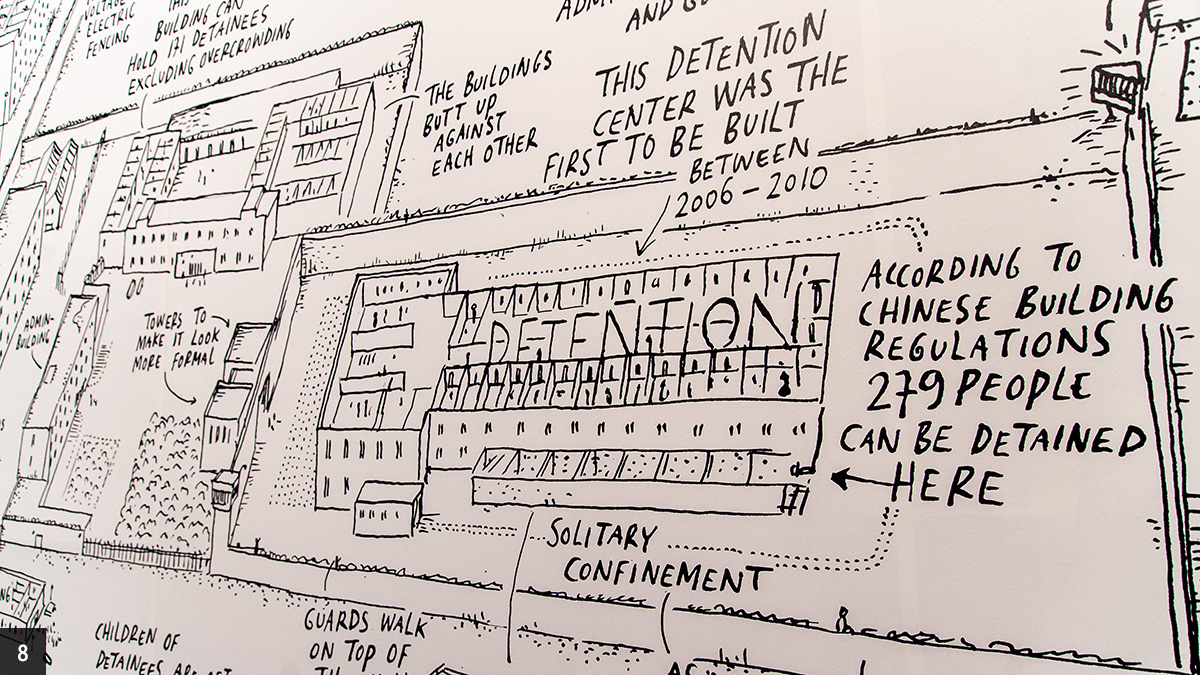 VOLTAGE
ELECTRIC
FENCING
THIS
BUILDING CAN
HOLD 171 DETAINEES
EXCLUDING OVERCROWDING
AND
THE BUILDINGS
BUTT UP
AGAINST
EACH OTHER
THIS DETENTION
CENTER WAS THE
FIRST TO BE BUILT
BETWEEN
2006-2010
ADMIN-
BUILDING
TOWERS TO
MAKE IT LOOK
MORE FORMAL
DETENTION
ACCORDING TO
CHINESE BUILDING
REGULATIONS
279 PEOPLE
CAN BE DETAINED
HERE
SOLITARY
CONFINEMENT
CHILDREN OF
DETAINEES ARE
GUARDS WALK
ON TOP OF
8